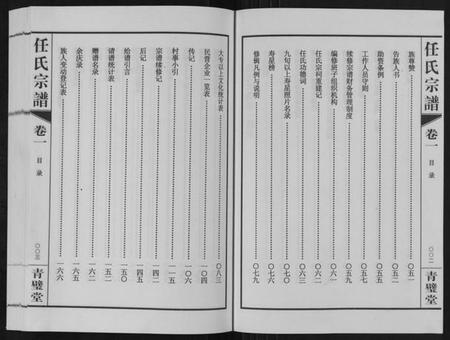 任氏宗譜
卷一
目录
〇〇二
青璧堂
族尊赞 〇五一
告族人书 〇五二
助资条例
工作人员守则
续修宗谱财务管理制度 〇五九
编修班子组织机构 〇六一
任氏宗祠重建记
任氏功德词 〇六三
九旬以上寿星照片名录
寿星榜 〇七六
修辑凡例与说明 〇七九
大专以上文化统计表 〇八三
民营企业一览表 一〇四
传记 一〇六
村事小引 一一五
宗谱续修记
后记 一四五
给谱引言 一五〇
请谱统计表 一五二
赠谱名录 一六二
余庆录 一六五
族人变动登记表 一六六
任氏宗譜
卷一
目录
〇〇三
青璧堂